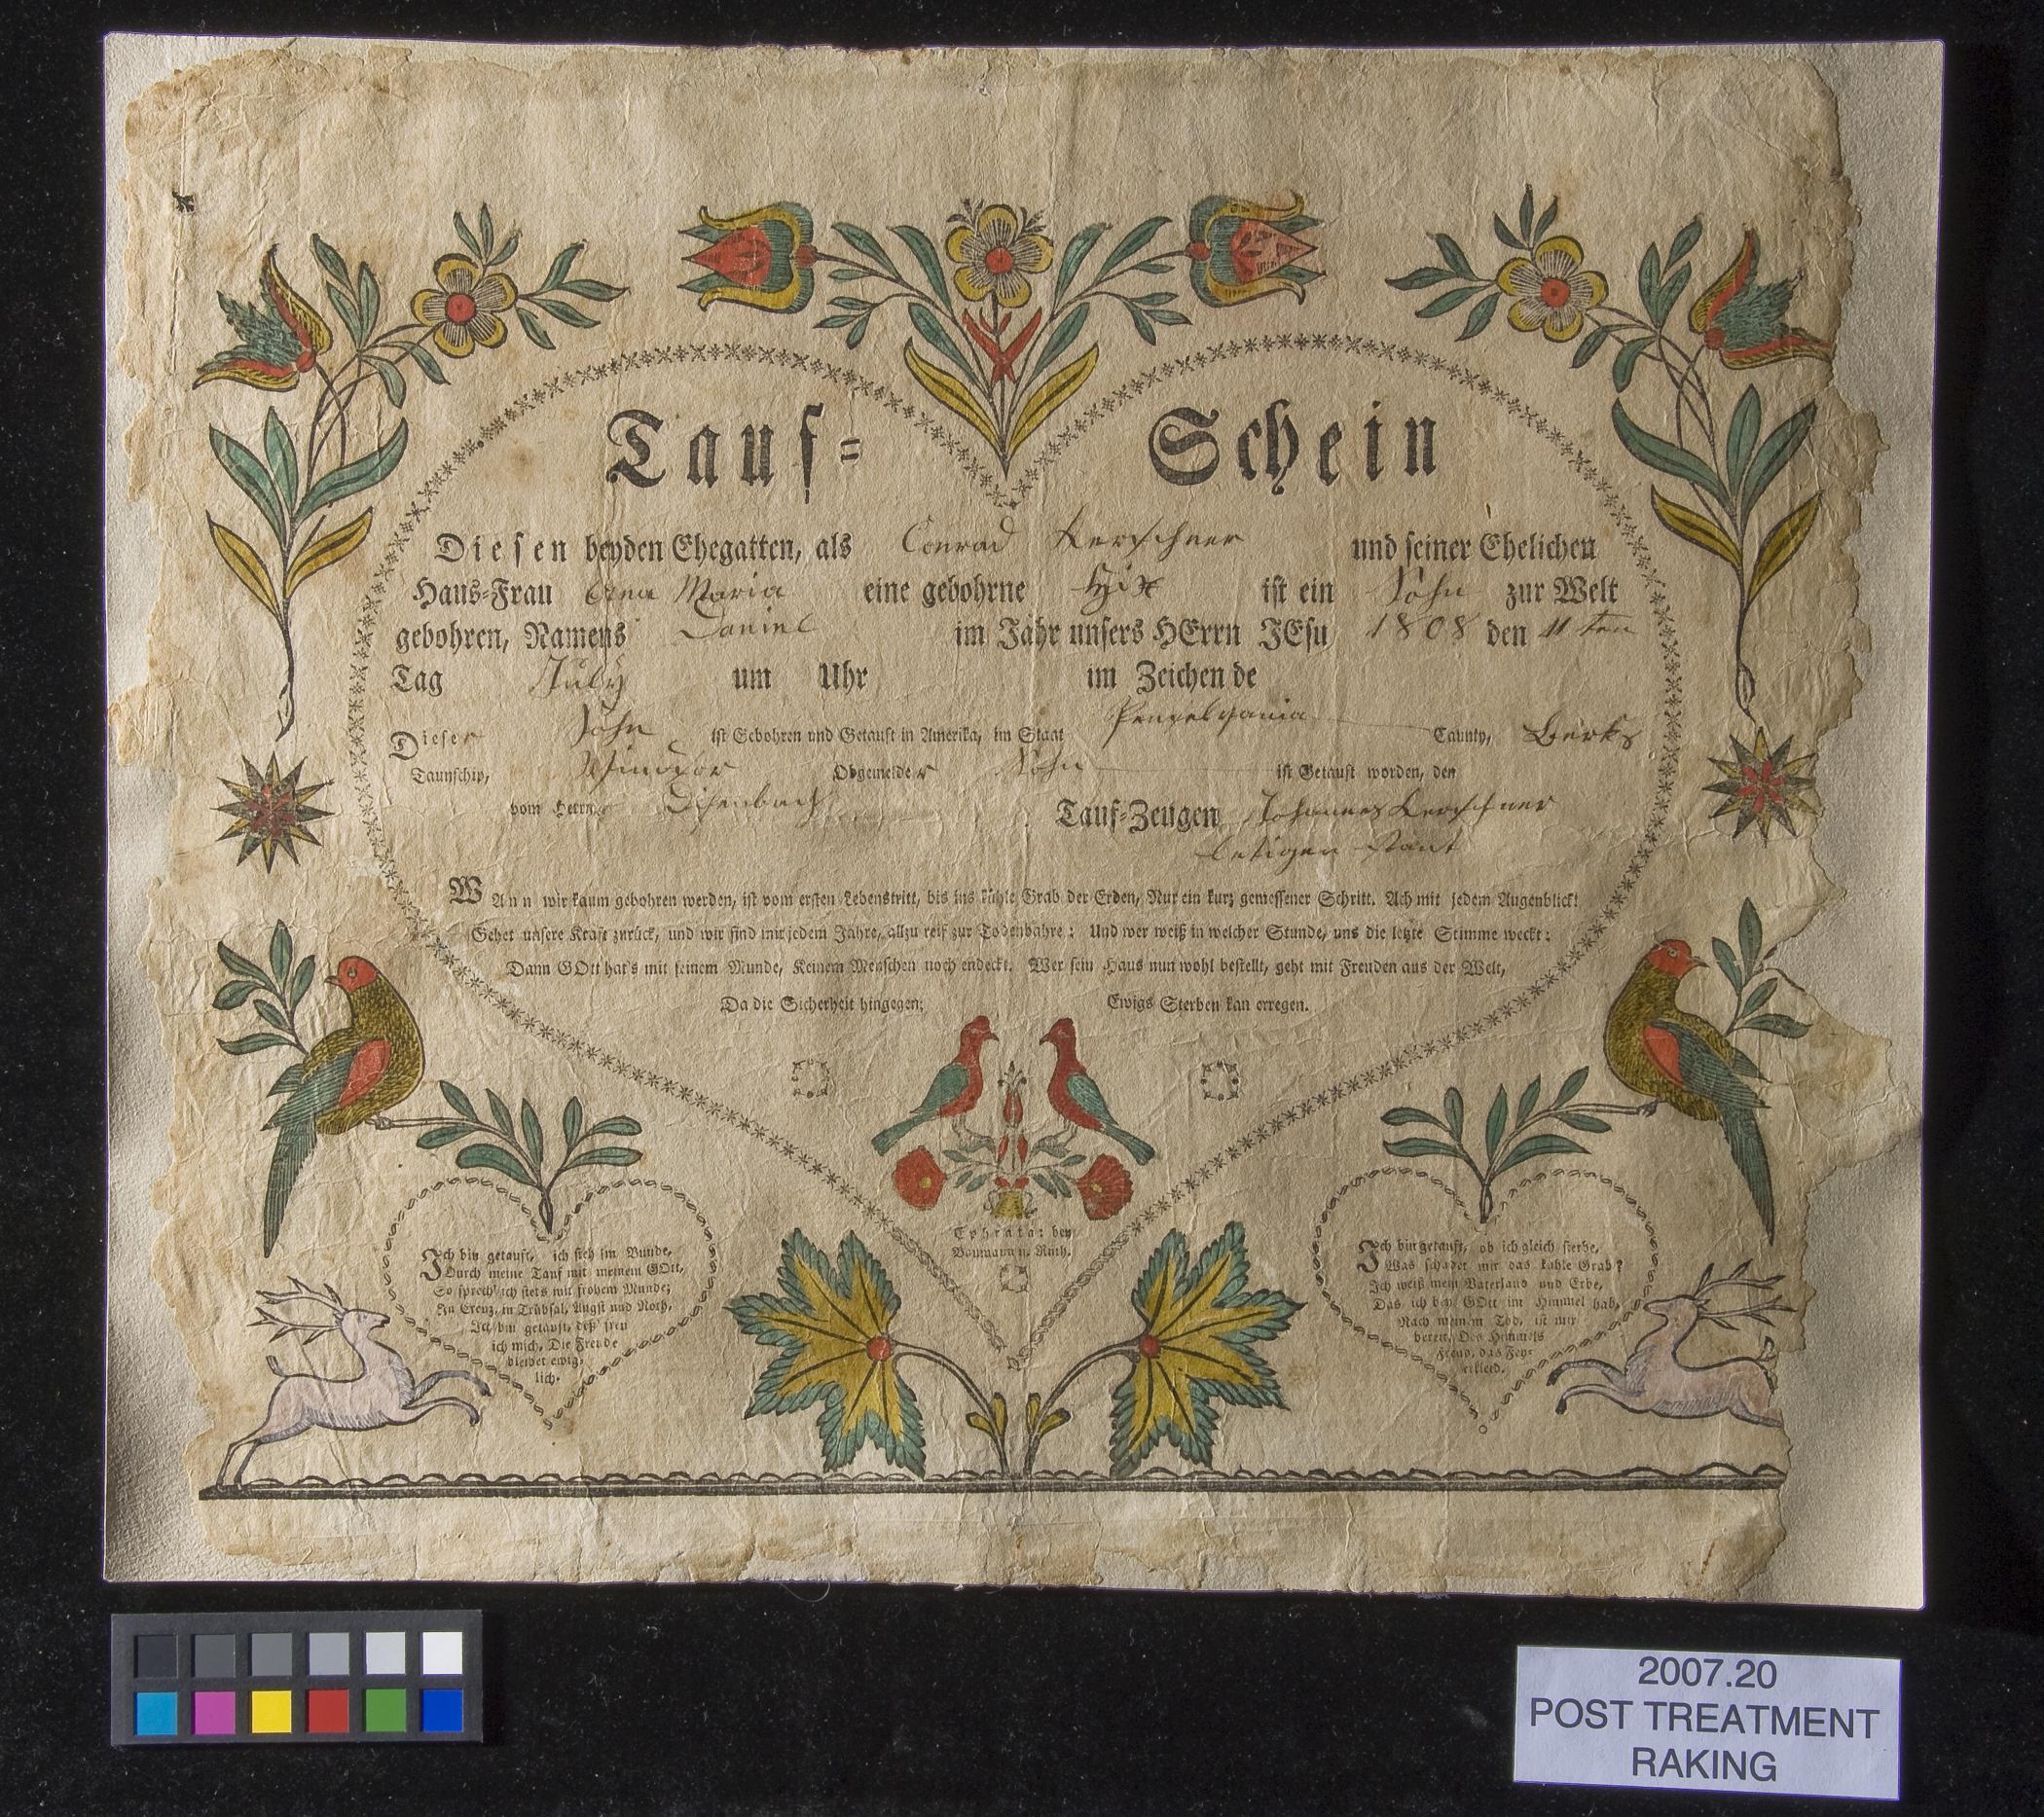 Tauf= Schein
Diesen beyden Ehegatten, als Conrad Kerschner und seiner Ehelichen
Haus=Frau Ana Maria eine gebohrne ist ein Sohn zur Welt
gebohren, Namens Daniel im Jahr unsers HErrn JEsu 1808 den 11 ten
Tag July um Uhr im Zeichen de
Dieser Sohn ist Gebohren und Getauft in Amerika, im Staat Penselvania Caunty, Berks
Taunschip, Windsor Obgemelder Sohn ist Getauft worden, den
vom Herrn Tauf=Zeugen Johannes Kerschner
letigen Stant
WAnn wir kaum gebohren werden, ist vom ersten Lebenstritt, bis ins kühle Grab der Erden, Nur ein kurz gemessener Schritt. Ach mit jedem Augenblick!
Gehet unsere Kraft zurück, und wir sind mit jedem Jahre, allzu reif zur Todenbahre: Und wer weiß in welcher Stunde, uns die letzte Stimme weckt:
Dann GOtt hat's mit seinem Munde, Keinem Menschen noch endeckt. Wer sein Haus nun wohl bestellt, geht mit Freuden aus der Welt,
Da die Sicherheit hingegen; Ewigs Sterben kan erregen.
Ephrata: bey
Baumann u. Ruth.
Ich bin getauft, ich steh im Bunde,
Durch meine Tauf mit meinem GOtt,
So sprech' ich stets mit frohem Munde;
In Creuz, in Trübsal, Angst und Noth,
Ich bin getauft, deß freu
ich mich, Die Freude
bleibet ewig-
lich.
Ich bin getauft, ob ich gleich sterbe,
Was schadet mir das kühle Grab?
Ich weiß mein Vaterland und Erbe,
Das ich bey GOtt im Himmel hab,
Nach meinem Tod, ist mir
bereit, Des Himmels
Freud, das Fey-
erkleid.
2007.20
POST TREATMENT
RAKING